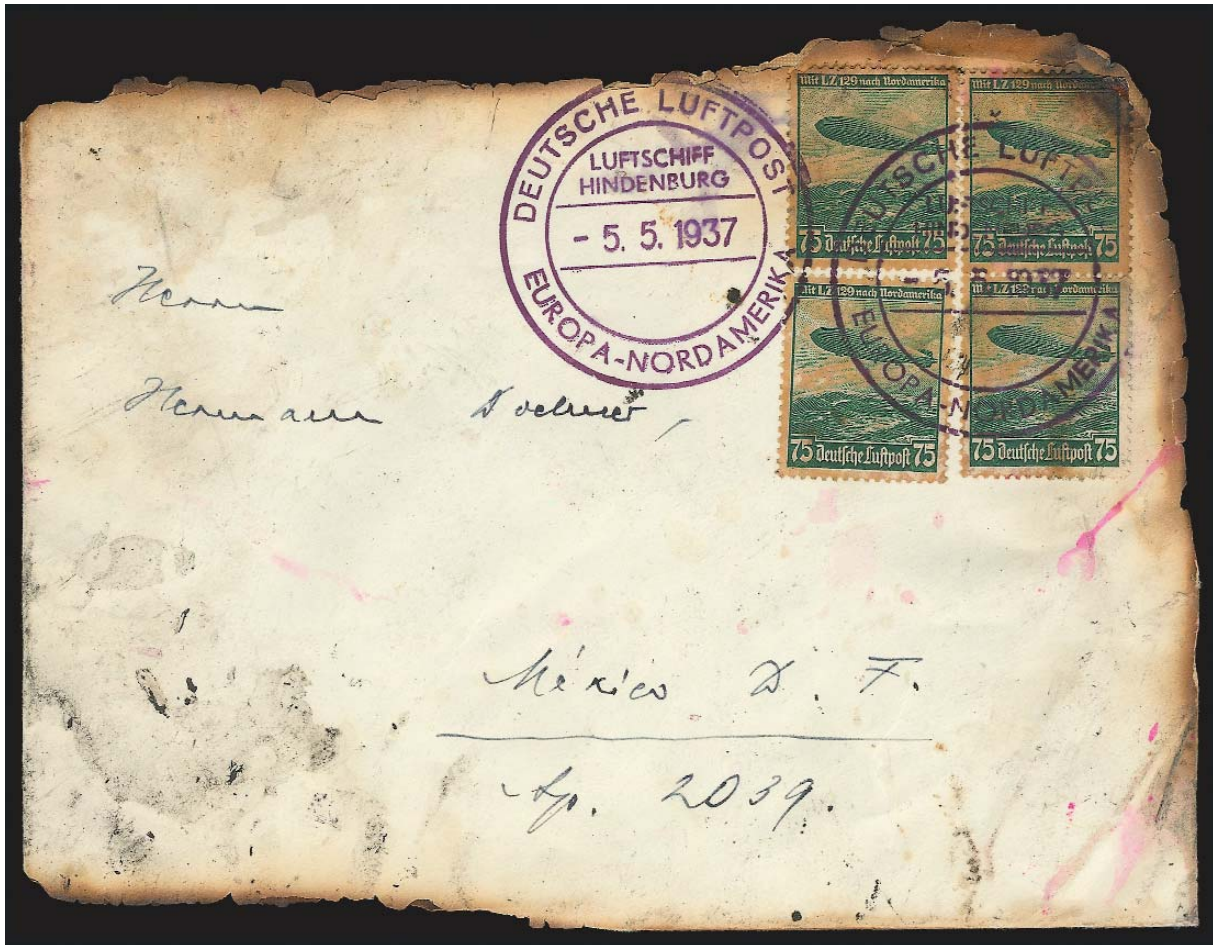 DEUTSCHE LUFTPOST
LUFTSCHIFF
HINDENBURG
- 5. 5. 1937
EUROPA-NORDAMERIKA
Mit LZ 129 nach Nordamerika
75 Deutsche Luftpost 75
Mit LZ 129 nach Nordamerika
75 Deutsche Luftpost 75
Mit LZ 129 nach Nordamerika
75 Deutsche Luftpost 75
Mit LZ 129 nach Nordamerika
75 Deutsche Luftpost 75
DEUTSCHE LUFTP
- 5. 5. 1937
EUROPA-NORDAMERIKA
Herrn
Hermann Doehner,
México D. F.
Ap. 2039.